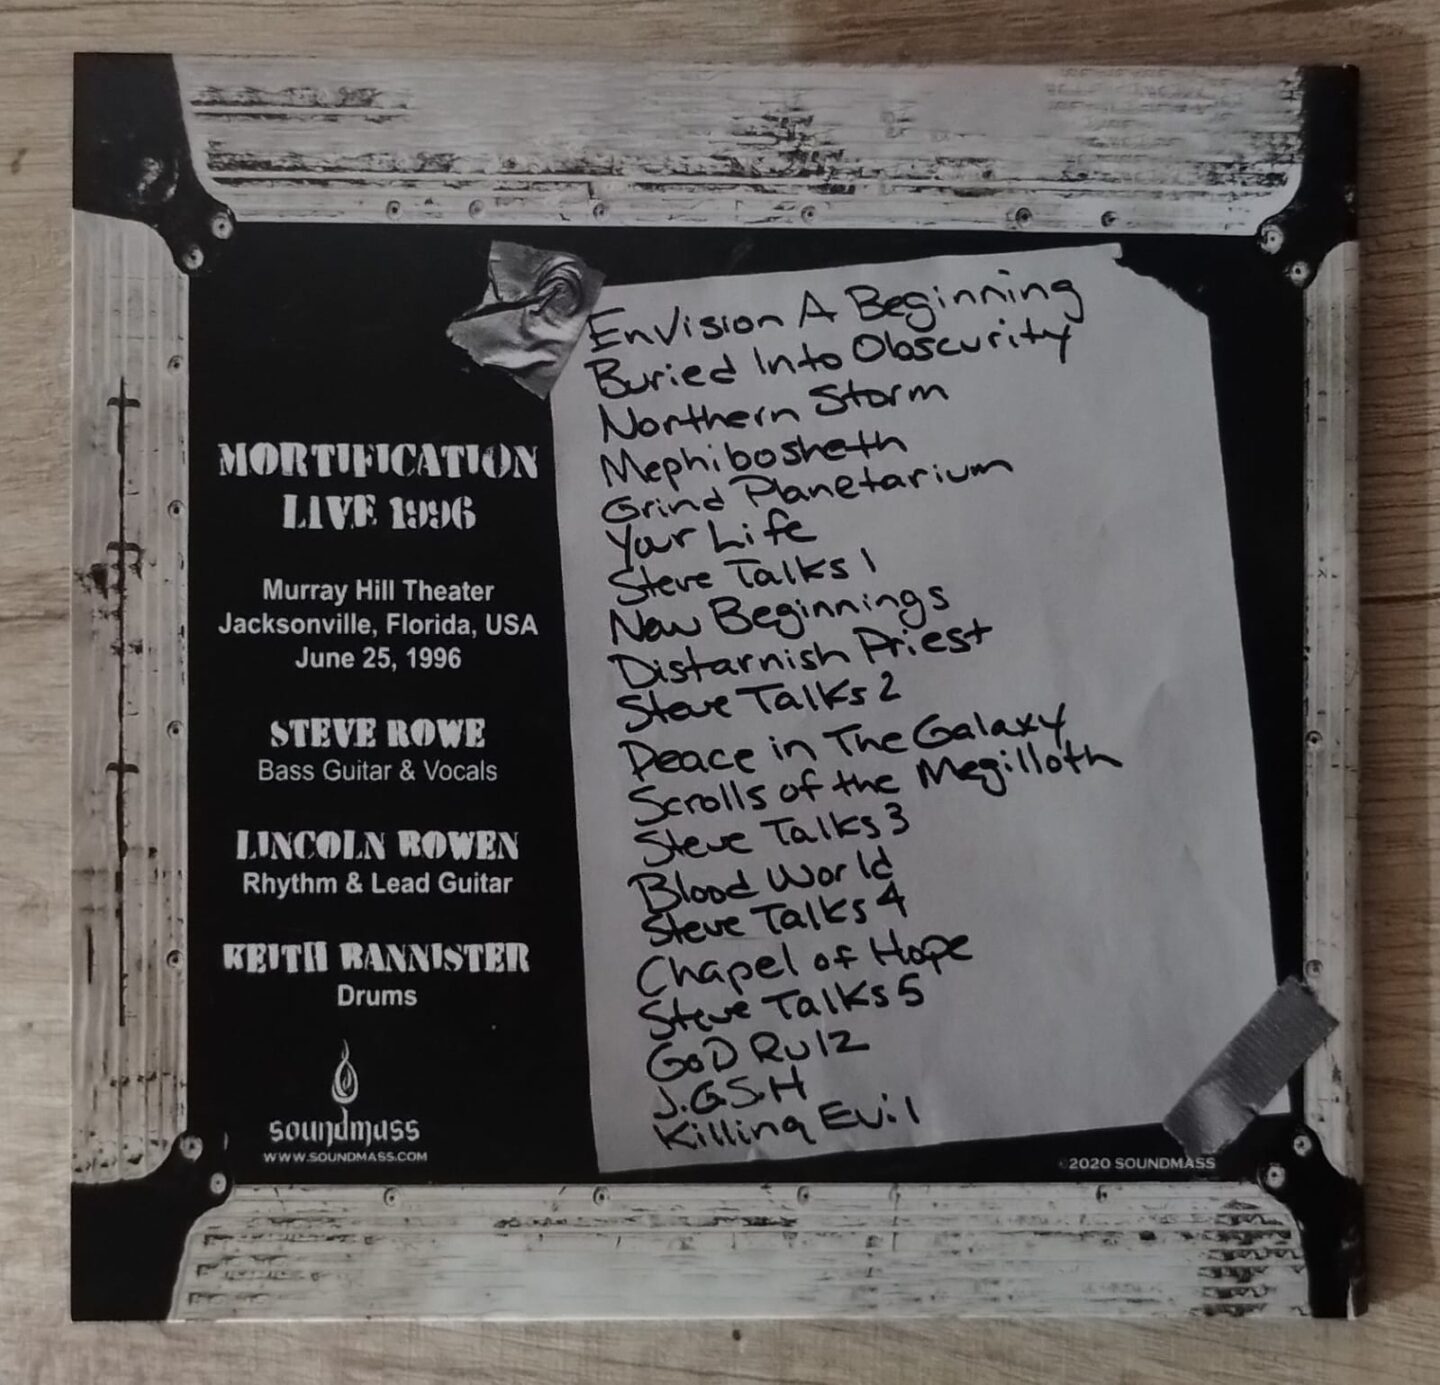 MORTIFICATION
LIVE 1996
Murray Hill Theater
Jacksonville, Florida, USA
June 25, 1996
STEVE ROWE
Bass Guitar & Vocals
LINCOLN BOWEN
Rhythm & Lead Guitar
KEITH BANNISTER
Drums
soundmass
WWW.SOUNDMASS.COM
EnVision A Beginning
Buried Into Obscurity
Northern Storm
Mephibosheth
Grind Planetarium
Your Life
Steve Talks 1
New Beginnings
Distarnish Priest
Steve Talks 2
Peace in The Galaxy
Scrolls of the Megilloth
Steve Talks 3
Blood World
Steve Talks 4
Chapel of Hope
Steve Talks 5
GoD Rulz
J.G.S.H
Killing Evil
©2020 SOUNDMASS